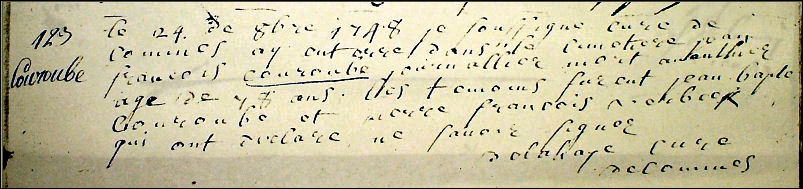 123
Couroube
le 24. de 8bre 1748 je soussigne cure de
comines ay enterre dans le cimetiere jean
francois couroube journallier mort avanthier
age de 78 ans. les temoins furent jean bapte
Couroube et pierre francois
qui ont declare ne savoir signer
Delahaye cure
de comines